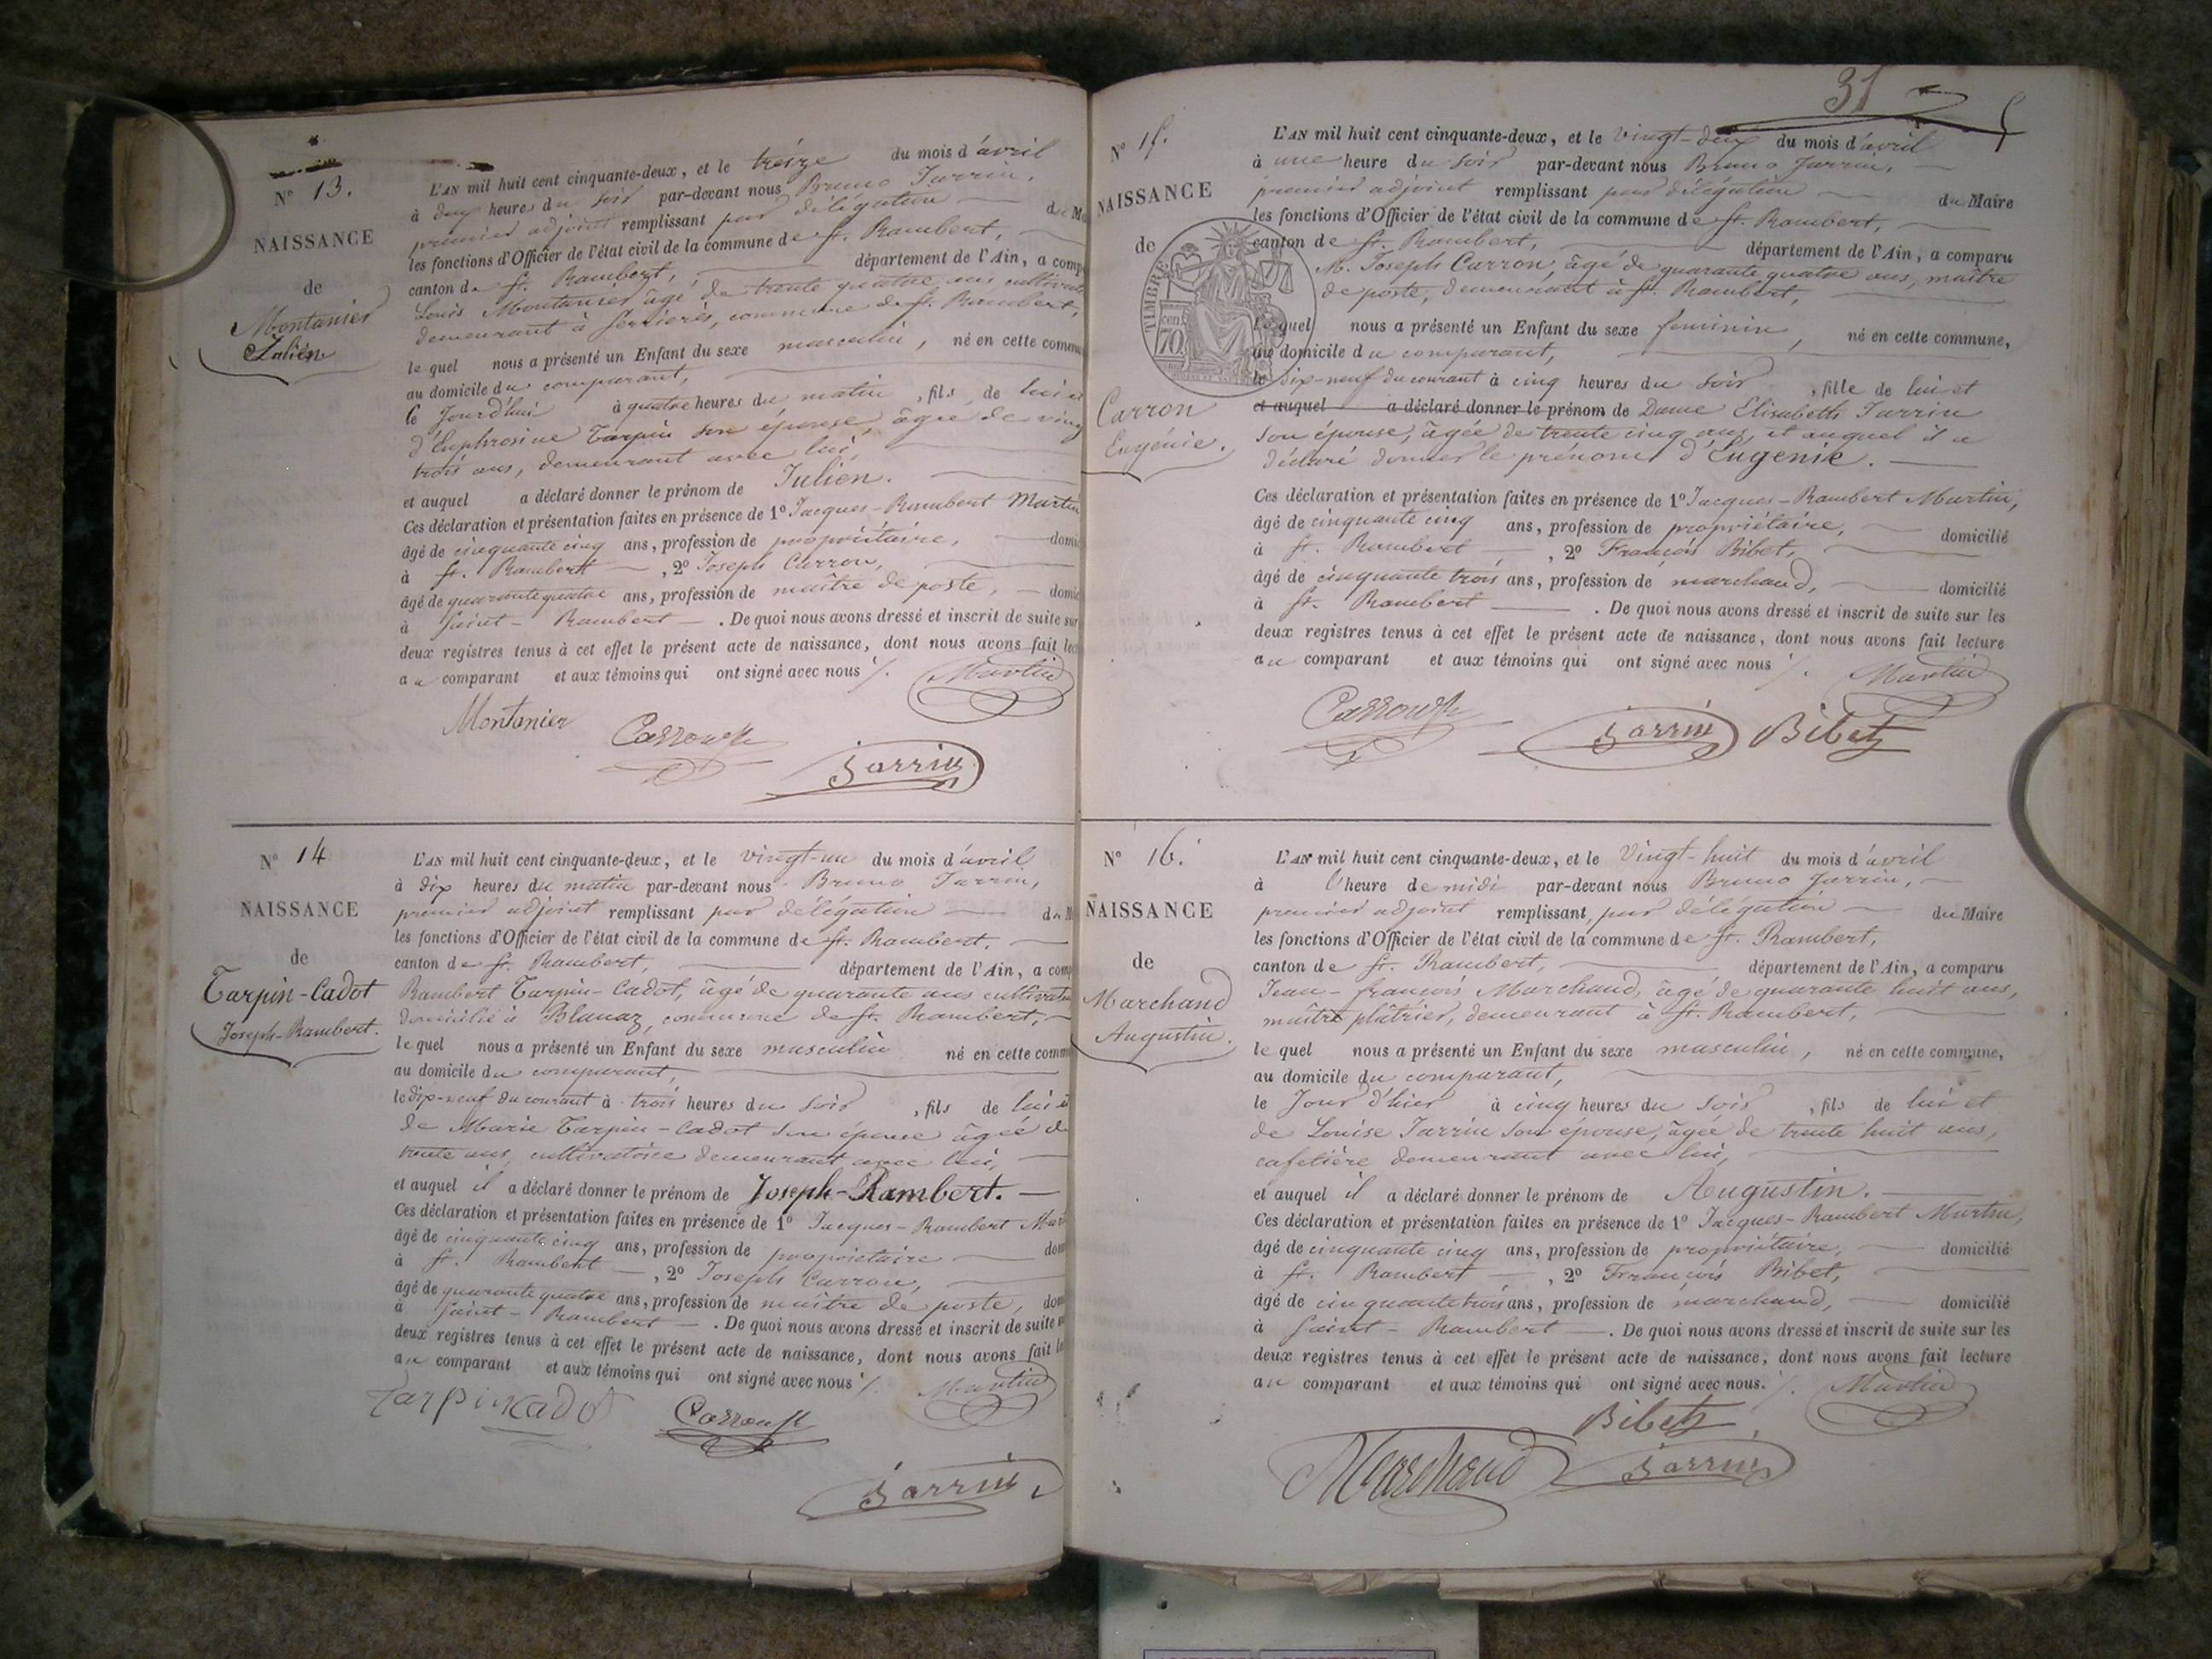 N° 13.
NAISSANCE
de
Montanier
Julien
L'AN mil huit cent cinquante-deux, et le treize du mois d'avril
à deux heures du soir par-devant nous Bruno Jarrin,
premier adjoint remplissant par délégation du Ma
les fonctions d'Officier de l'état civil de la commune de St. Rambert,
canton de St. Rambert, département de l'Ain, a comp
Louis Montanier âgé de trente quatre ans cultivate
demeurant à Serrières, commune de St. Rambert,
lequel nous a présenté un Enfant du sexe masculin, né en cette commu
au domicile du comparant,
le Jourd'hui à quatre heures du matin, fils de lui et
d'Euphrosine Tarpin son épouse, âgée de ving
trois ans, demeurant avec lui,
et auquel a déclaré donner le prénom de Julien.
Ces déclaration et présentation faites en présence de 1° Jacques-Rambert Martin
âgé de cinquante cinq ans, profession de propriétaire, domic
à St. Rambert, 2° Joseph Carron,
âgé de quarante quatre ans, profession de maître de poste, domic
à Saint-Rambert. De quoi nous avons dressé et inscrit de suite sur
deux registres tenus à cet effet le présent acte de naissance, dont nous avons fait lec
au comparant et aux témoins qui ont signé avec nous %. Martin
Montanier Carron Jh
Jarrin
N° 14
NAISSANCE
de
Tarpin-Cadot
Joseph-Rambert.
L'AN mil huit cent cinquante-deux, et le vingt-un du mois d'avril
à dix heures du matin par-devant nous Bruno Jarrin,
premier adjoint remplissant par délégation du M
les fonctions d'Officier de l'état civil de la commune de St. Rambert,
canton de St. Rambert, département de l'Ain, a comp
Rambert Tarpin-Cadot, âgé de quarante ans cultivate
domicilié à Blanaz, commune de St. Rambert,
lequel nous a présenté un Enfant du sexe masculin né en cette comm
au domicile du comparant,
le dix-neuf du courant à trois heures du soir, fils de lui et
de Marie Tarpin-Cadot son épouse âgée de
trente ans, cultivatrice demeurant avec lui,
et auquel il a déclaré donner le prénom de Joseph-Rambert.
Ces déclaration et présentation faites en présence de 1° Jacques-Rambert Mart
âgé de cinquante cinq ans, profession de propriétaire dom
à St. Rambert, 2° Joseph Carron,
âgé de quarante quatre ans, profession de maître de poste, dom
à Saint-Rambert. De quoi nous avons dressé et inscrit de suite
deux registres tenus à cet effet le présent acte de naissance, dont nous avons fait l
au comparant et aux témoins qui ont signé avec nous %. Martin
Tarpin Cadot Carron Jh
Jarrin
31
N° 15.
NAISSANCE
de
TIMBRE
cen. 70
Carron
Eugénie.
L'AN mil huit cent cinquante-deux, et le vingt-deux du mois d'avril
à une heure du soir par-devant nous Bruno Jarrin,
premier adjoint remplissant par délégation du Maire
les fonctions d'Officier de l'état civil de la commune de St. Rambert,
canton de St. Rambert, département de l'Ain, a comparu
M. Joseph Carron, âgé de quarante quatre ans, maître
de poste, demeurant à St. Rambert,
Lequel nous a présenté un Enfant du sexe feminin, né en cette commune,
au domicile du comparant,
le dix-neuf du courant à cinq heures du soir, fille de lui et
et auquel a déclaré donner le prénom de Dame Elisabeth Jarrin
son épouse, âgée de trente cinq ans, et auquel il a
déclaré donner le prénom d'Eugénie.
Ces déclaration et présentation faites en présence de 1° Jacques-Rambert Martin,
âgé de cinquante cinq ans, profession de propriétaire, domicilié
à St. Rambert, 2° François Bibet,
âgé de cinquante trois ans, profession de marchand, domicilié
à St. Rambert. De quoi nous avons dressé et inscrit de suite sur les
deux registres tenus à cet effet le présent acte de naissance, dont nous avons fait lecture
au comparant et aux témoins qui ont signé avec nous %. Martin
Carron Jh Jarrin Bibet
N° 16.
NAISSANCE
de
Marchand
Augustin.
L'AN mil huit cent cinquante-deux, et le vingt-huit du mois d'avril
à l'heure de midi par-devant nous Bruno Jarrin,
premier adjoint remplissant, par délégation du Maire
les fonctions d'Officier de l'état civil de la commune de St. Rambert,
canton de St. Rambert, département de l'Ain, a comparu
Jean-françois Marchand, âgé de quarante huit ans,
maître plâtrier, demeurant à St. Rambert,
lequel nous a présenté un Enfant du sexe masculin, né en cette commune,
au domicile du comparant,
le Jour d'hier à cinq heures du soir, fils de lui et
de Louise Jarrin son épouse, âgée de trente huit ans,
cafetière demeurant avec lui,
et auquel il a déclaré donner le prénom de Augustin.
Ces déclaration et présentation faites en présence de 1° Jacques-Rambert Martin,
âgé de cinquante cinq ans, profession de propriétaire, domicilié
à St. Rambert, 2° François Bibet,
âgé de cinquante trois ans, profession de marchand, domicilié
à Saint-Rambert. De quoi nous avons dressé et inscrit de suite sur les
deux registres tenus à cet effet le présent acte de naissance, dont nous avons fait lecture
au comparant et aux témoins qui ont signé avec nous. %. Martin
Bibet
Marchand Jarrin